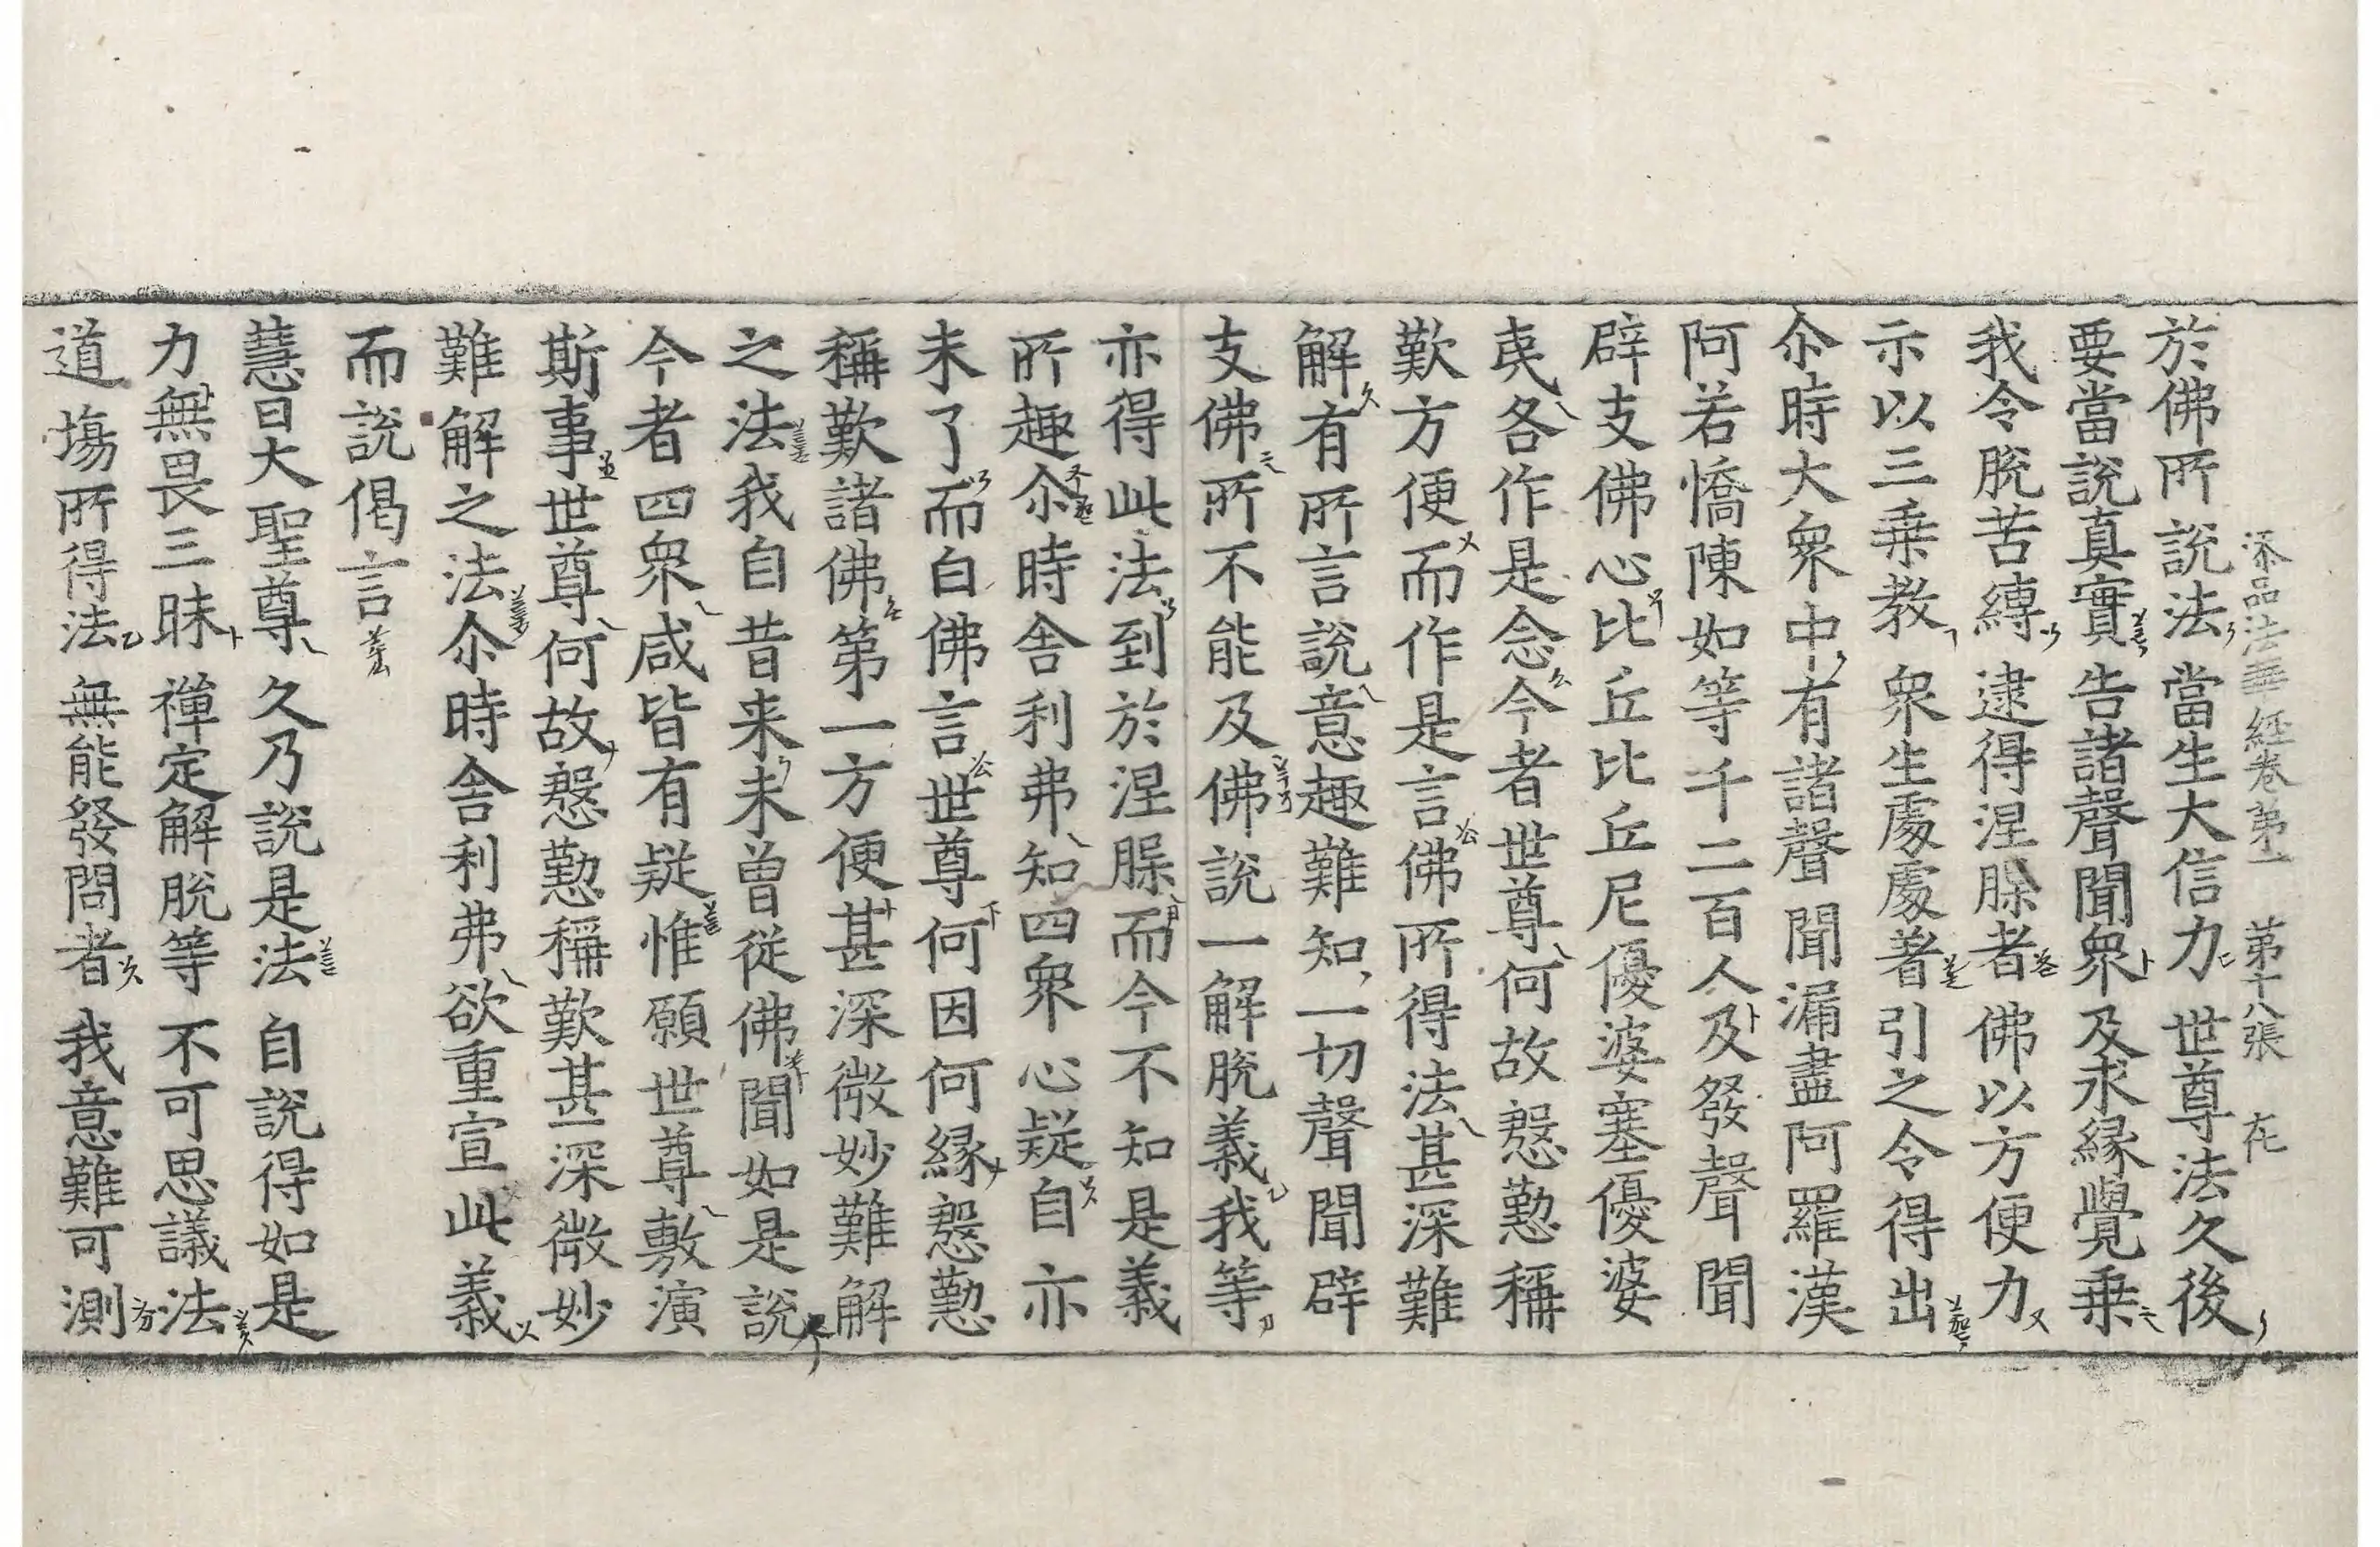 添品法華經卷第一 第十八張 在
於佛所說法 當生大信力 世尊法久後
要當說真實 告諸聲聞衆 及求緣覺乗
我令脫苦縛 逮得涅槃者 佛以方便力
示以三乗教 衆生處處著 引之令得出
尒時大衆中有諸聲聞漏盡阿羅漢
阿若憍陳如等千二百人及發聲聞
辟支佛心比丘比丘尼優婆塞優婆
夷各作是念今者世尊何故慇懃稱
歎方便而作是言佛所得法甚深難
解有所言說意趣難知一切聲聞辟
支佛所不能及佛說一解脫義我等
亦得此法到於涅槃而今不知是義
所趣尒時舍利弗知四衆心疑自亦
未了而白佛言世尊何因何緣慇懃
稱歎諸佛第一方便甚深微妙難解
之法我自昔来未曾從佛聞如是說
今者四衆咸皆有疑惟願世尊敷演
斯事世尊何故慇懃稱歎甚深微妙
難解之法尒時舍利弗欲重宣此義
而說偈言
慧日大聖尊 久乃說是法 自說得如是
力無畏三昧 禪定解脫等 不可思議法
道場所得法 無能發問者 我意難可測